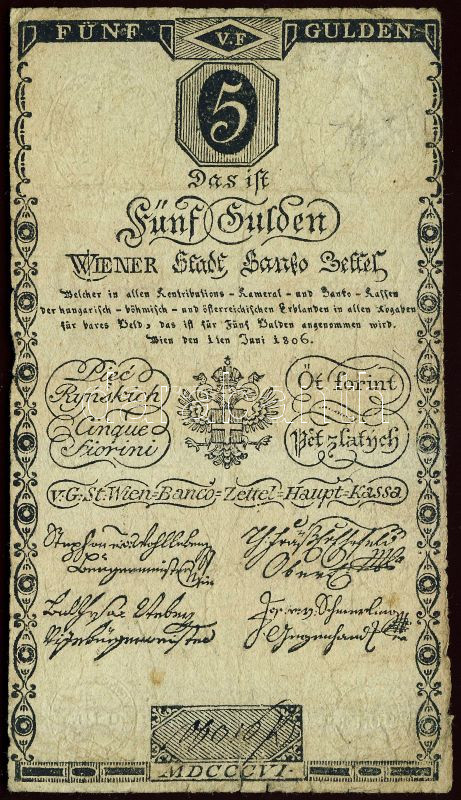 FÜNF V.F GULDEN
5
Das ist
Fünf Gulden
WIENER Stadt Banko Zettel
Welcher in allen Kontributions-Kameral-und Banko-Kassen
der hungarisch-böhmisch-und österreichischen Erblanden in allen Abgaben
für bares Geld, das ist für Fünf Gulden angenommen wird.
Wien den 1ten Juni 1806.
Pięć
Ryńskich
Öt forint
Cinque
Fiorini
Pět zlatych
V.G:St:Wien=Banco=Zettel=Haupt=Kassa
Stephan
Burgermeister
Ober
Vizebürgermeister
MDCCCVI